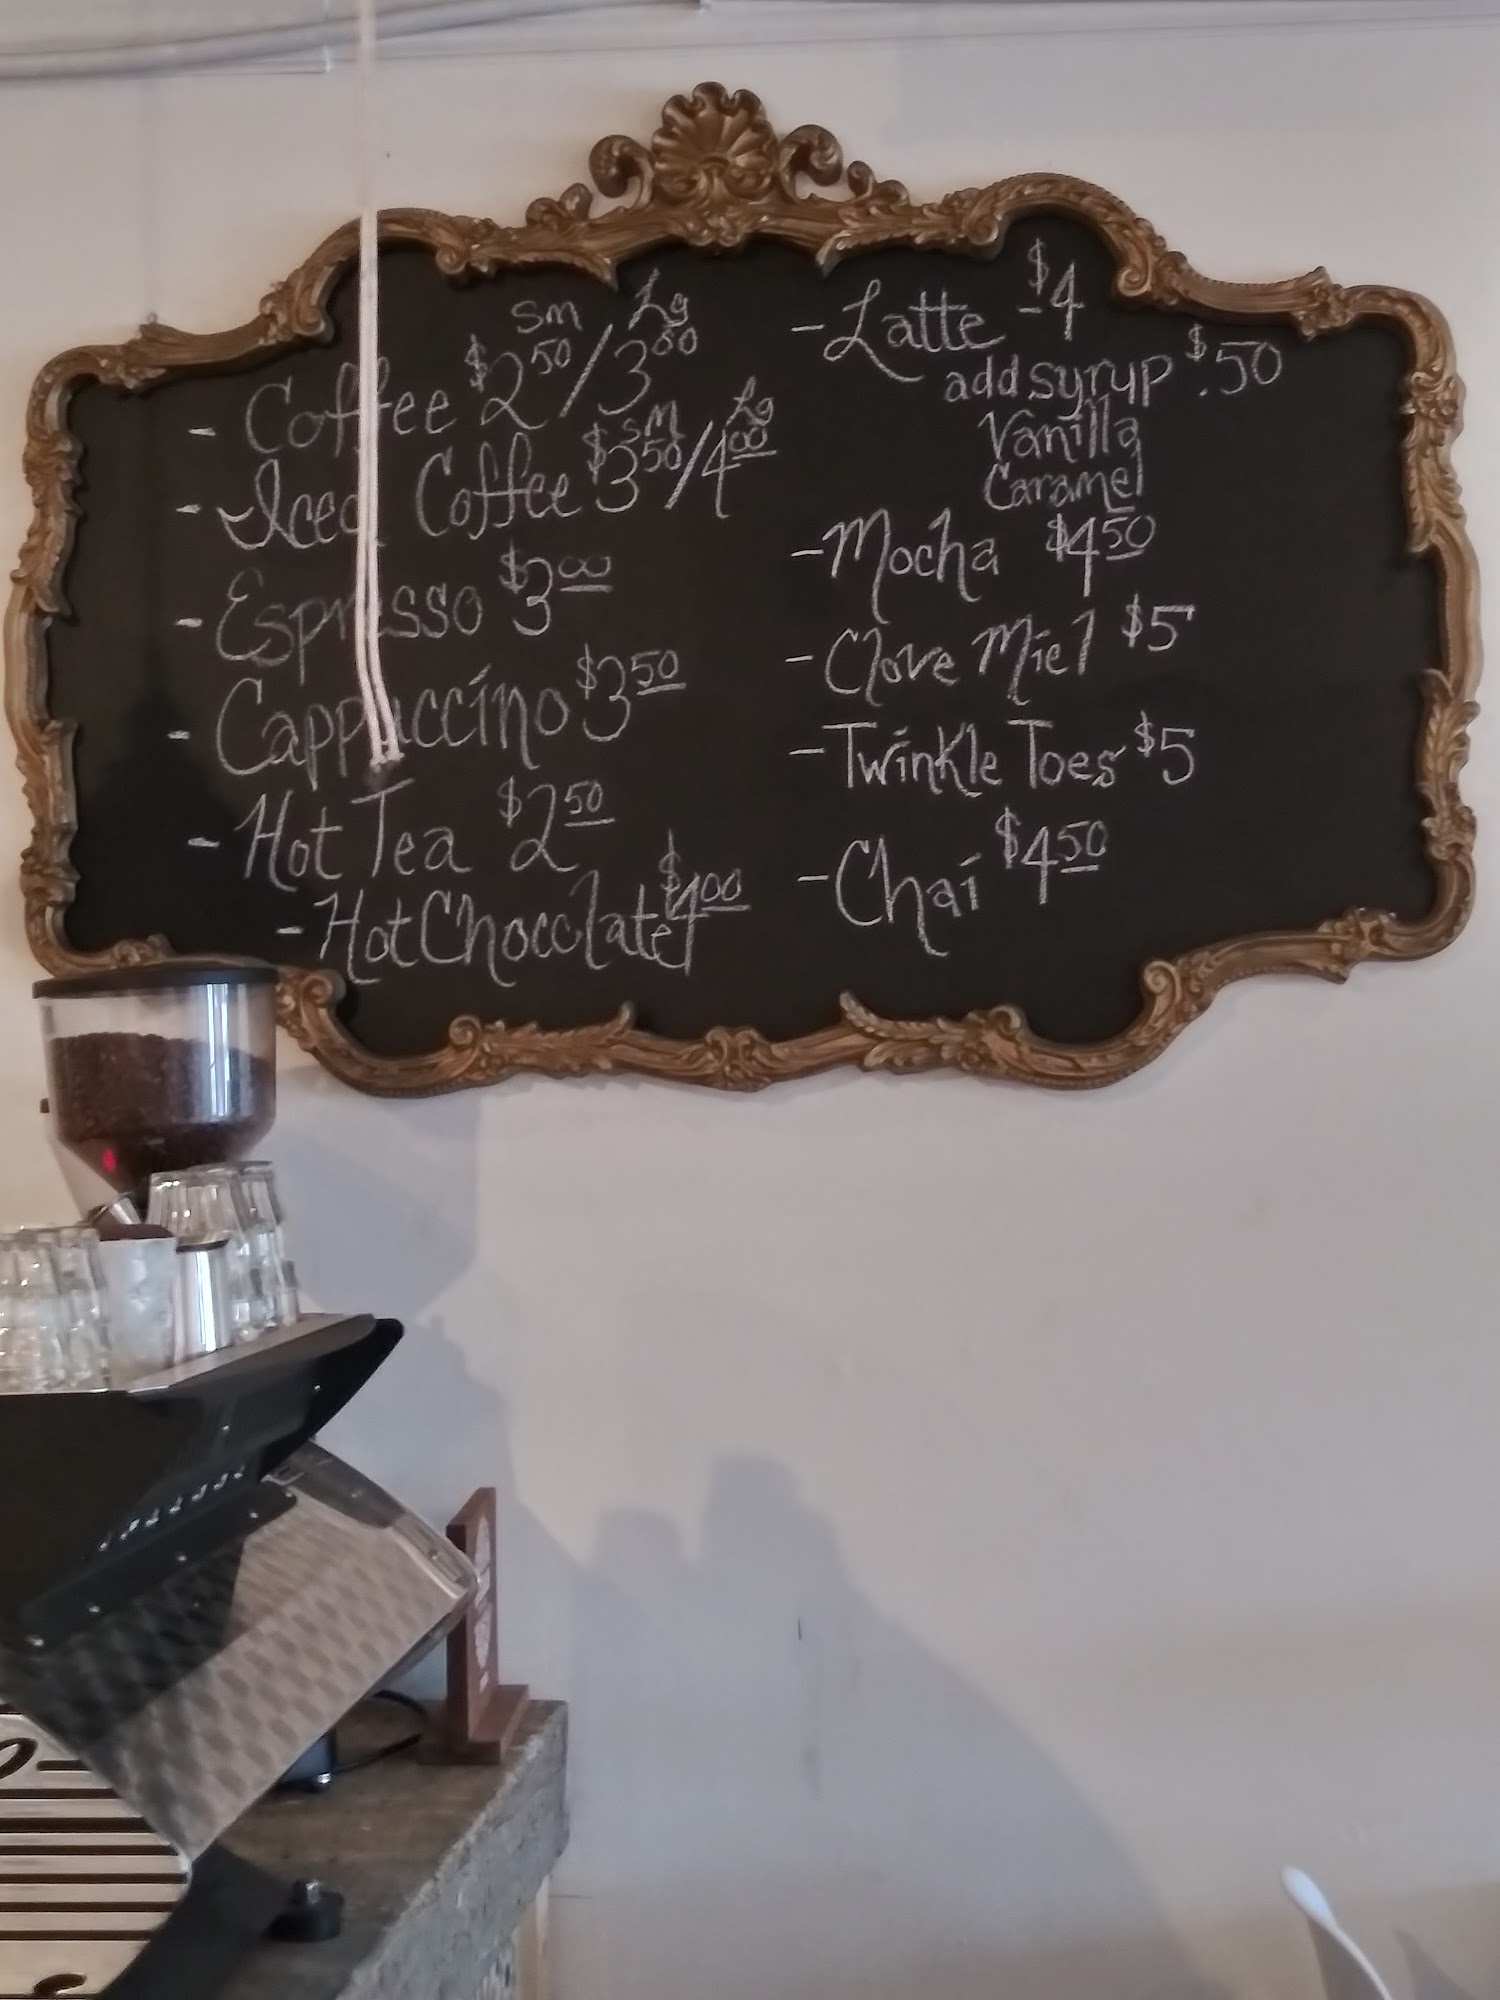 Sm Lg
- Coffee $2.50/3.00
Sm Lg
- Iced Coffee $3.50/4.00
- Espresso $3.00
- Cappuccino $3.50
- Hot Tea $2.50
- Hot Chocolate $4.00
- Latte - $4
add syrup $.50
Vanilla
Caramel
- Mocha $4.50
- Clove Miel $5
- Twinkle Toes $5
- Chai $4.50